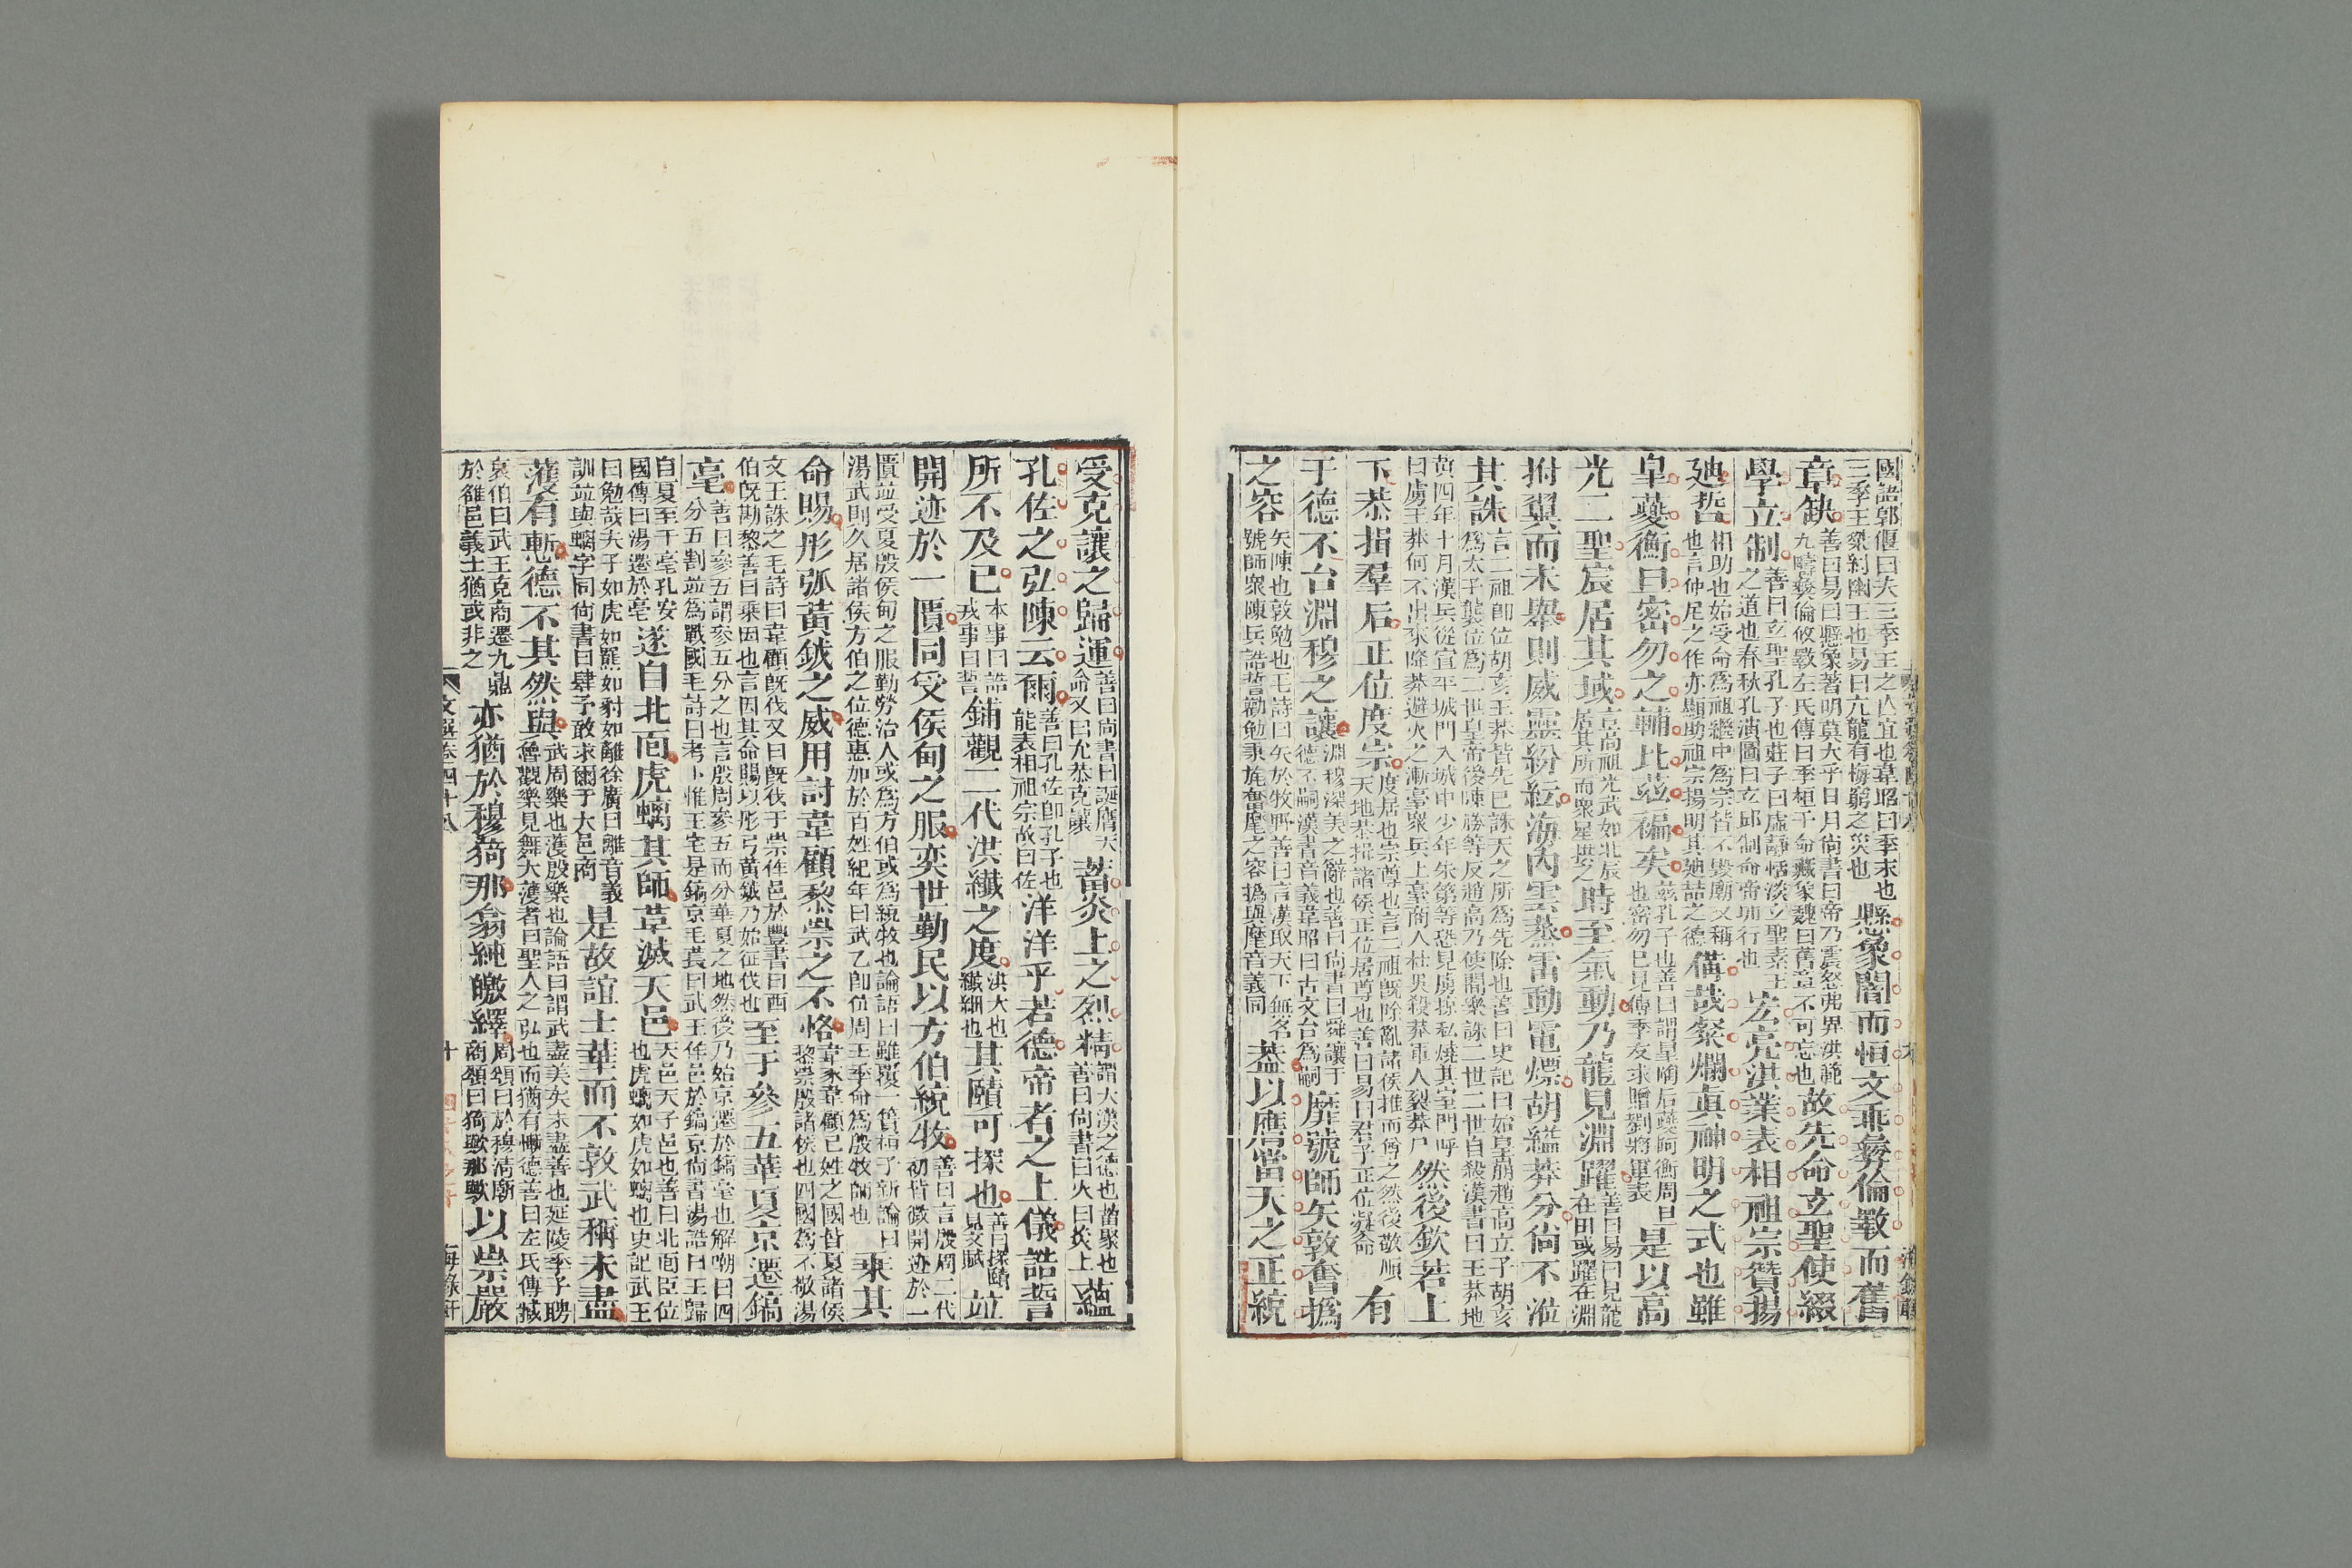 國語郭偃曰夫三季王之亾宜也韋昭曰季末也
三季王桀紂幽王也易曰亢龍有悔窮之災也
縣象闇而恒文乖彝倫斁而舊
章缺
善曰易曰縣象著明莫大乎日月尚書曰帝乃震怒弗畀洪範
九疇彝倫攸斁左氏傳曰季桓子命藏象魏曰舊章不可忘也
故先命玄聖使綴
學立制
善曰玄聖孔子也莊子曰虛靜恬淡玄聖素王
之道也春秋孔演圖曰立邱制命帝卯行也
宏亮洪業表相祖宗贊揚
廸哲
相助也始受命爲祖繼中爲宗皆不毀廟又稱
也言仲尼之作亦顯助祖宗揚明其廸喆之德
備哉粲爛眞神明之式也雖
皐夔衡旦密勿之輔比茲褊矣
茲孔子也善曰謂皐陶后夔阿衡周旦
也密勿已見傅季友求贈劉將軍表
是以高
光二聖宸居其域
言高祖光武如北辰
居其所而衆星拱之
時至氣動乃龍見淵躍
善曰易曰見龍
在田或躍在淵
拊翼而未舉則威靈紛紜海內雲蒸雷動電熛胡縊莽分尚不涖
其誅
言二祖卽位胡亥王莽皆先已誅天之所爲先除也善曰史記曰始皇崩趙高立子胡亥
爲太子襲位爲二世皇帝後陳勝等反趙高乃使閻樂誅二世二世自殺漢書曰王莽地
黃四年十月漢兵從宣平城門入城中少年朱第等恐見鹵掠私燒其室門呼
曰虜王莽何不出來降莽避火之漸臺衆兵上臺商人杜吳殺莽軍人裂莽尸
然後欽若上
下恭揖羣后正位度宗
度居也宗尊也言二祖旣除亂諸侯推而尊之然後敬順
天地恭揖諸侯正位居尊也善曰易曰君子正位凝命
有
于德不台淵穆之讓
淵穆深美之辭也善曰尚書曰舜讓于
德不嗣漢書音義韋昭曰古文台爲嗣
靡號師矢敦奮撝
之容
矢陳也敦勉也毛詩曰矢於牧野善曰言漢取天下無名
號師衆陳兵誥誓勸勉秉旄奮麾之容撝與麾音義同
葢以膺當天之正統
受克讓之歸運
善曰尚書曰誕膺天
命又曰允恭克讓
蓄炎上之烈精
謂大漢之德也蓄聚也
善曰尚書曰火曰炎上
蘊
孔佐之弘陳云爾
善曰孔佐卽孔子也
能表相祖宗故曰佐
洋洋乎若德帝者之上儀誥誓
所不及已
本事曰誥
戎事曰誓
鋪觀二代洪纖之度
洪大也
纖細也
其賾可探也
善曰探賾
見文賦
竝
開迹於一匱同受侯甸之服奕世勤民以方伯統牧
善曰言殷周二代
初皆微開迹於一
匱竝受夏殷侯甸之服勤勞治人或爲方伯或爲統牧也論語曰雖覆一簣桓子新論曰
湯武則久居諸侯方伯之位德惠加於百姓紀年曰武乙卽位周王季命爲殷牧師也
乘其
命賜彤弧黃鉞之威用討韋顧黎崇之不恪
韋豕韋顧已姓之國皆夏諸侯
黎崇殷諸侯也四國爲不敬湯
文王誅之毛詩曰韋顧旣伐又曰旣伐于崇作邑於豐書曰西
伯旣勘黎善曰乘因也言因其命賜以彤弓黃鉞乃始征伐也
至于參五華夏京遷鎬
亳
善曰參五謂參五分之也言殷周參五而分華夏之地然後乃始京遷於鎬亳也解嘲曰四
分五割竝爲戰國毛詩曰考卜惟王宅是鎬京毛萇曰武王作邑於鎬京尚書湯誥曰王歸
自夏至于亳孔安
國傳曰湯遷於亳
遂自北面虎螭其師革滅天邑
天邑天子邑也善曰北面臣位
也虎螭如虎如螭也史記武王
曰勉哉夫子如虎如羆如豺如離徐廣曰離音義
訓竝與螭字同尚書曰肆予敢求爾于大邑商
是故誼士華而不敦武稱未盡
濩有慙德不其然與
武周樂也濩殷樂也論語曰謂武盡美矣未盡善也延陵季子聘
魯觀樂見舞大濩者曰聖人之弘也而猶有慙德善曰左氏傳臧
哀伯曰武王克商遷九鼎
於雒邑義士猶或非之
亦猶於穆猗那翕純皦繹
周頌曰於穆淸廟
商頌曰猗歟那歟
以崇嚴
文選卷四十八
十
海錄軒